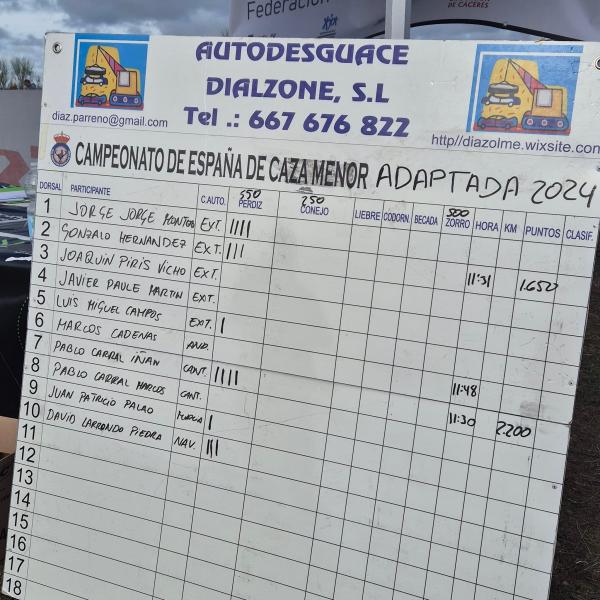 Federación
DE CÁCERES
AUTODESGUACE
DIALZONE, S.L
Tel .: 667 676 822
diaz.parreno@gmail.com
http//diazolme.wixsite.com
CAMPEONATO DE ESPAÑA DE CAZA MENOR ADAPTADA 2024
550 250 500
DORSAL PARTICIPANTE C.AUTO. PERDIZ CONEJO LIEBRE CODORN. BECADA ZORRO HORA KM PUNTOS CLASIF.
1 JORGE JORGE MONTON EXT. IIII
2 GONZALO HERNANDEZ EXT. III
3 JOAQUIN PIRIS VICHO EXT. 11:31 1.650
4 JAVIER PAULE MARTIN EXT.
5 LUIS MIGUEL CAMPOS EXT. I
6 MARCOS CADENAS AND.
7 PABLO CARRAL IÑAN CANT. IIII
8 PABLO CARRAL MARCOS CANT. 11:48
9 JUAN PATRICIO PALAO I 11:30 2.200
10 DAVID LARRONDO PIEDRA NAV. III
11
12
13
14
15
16
17
18